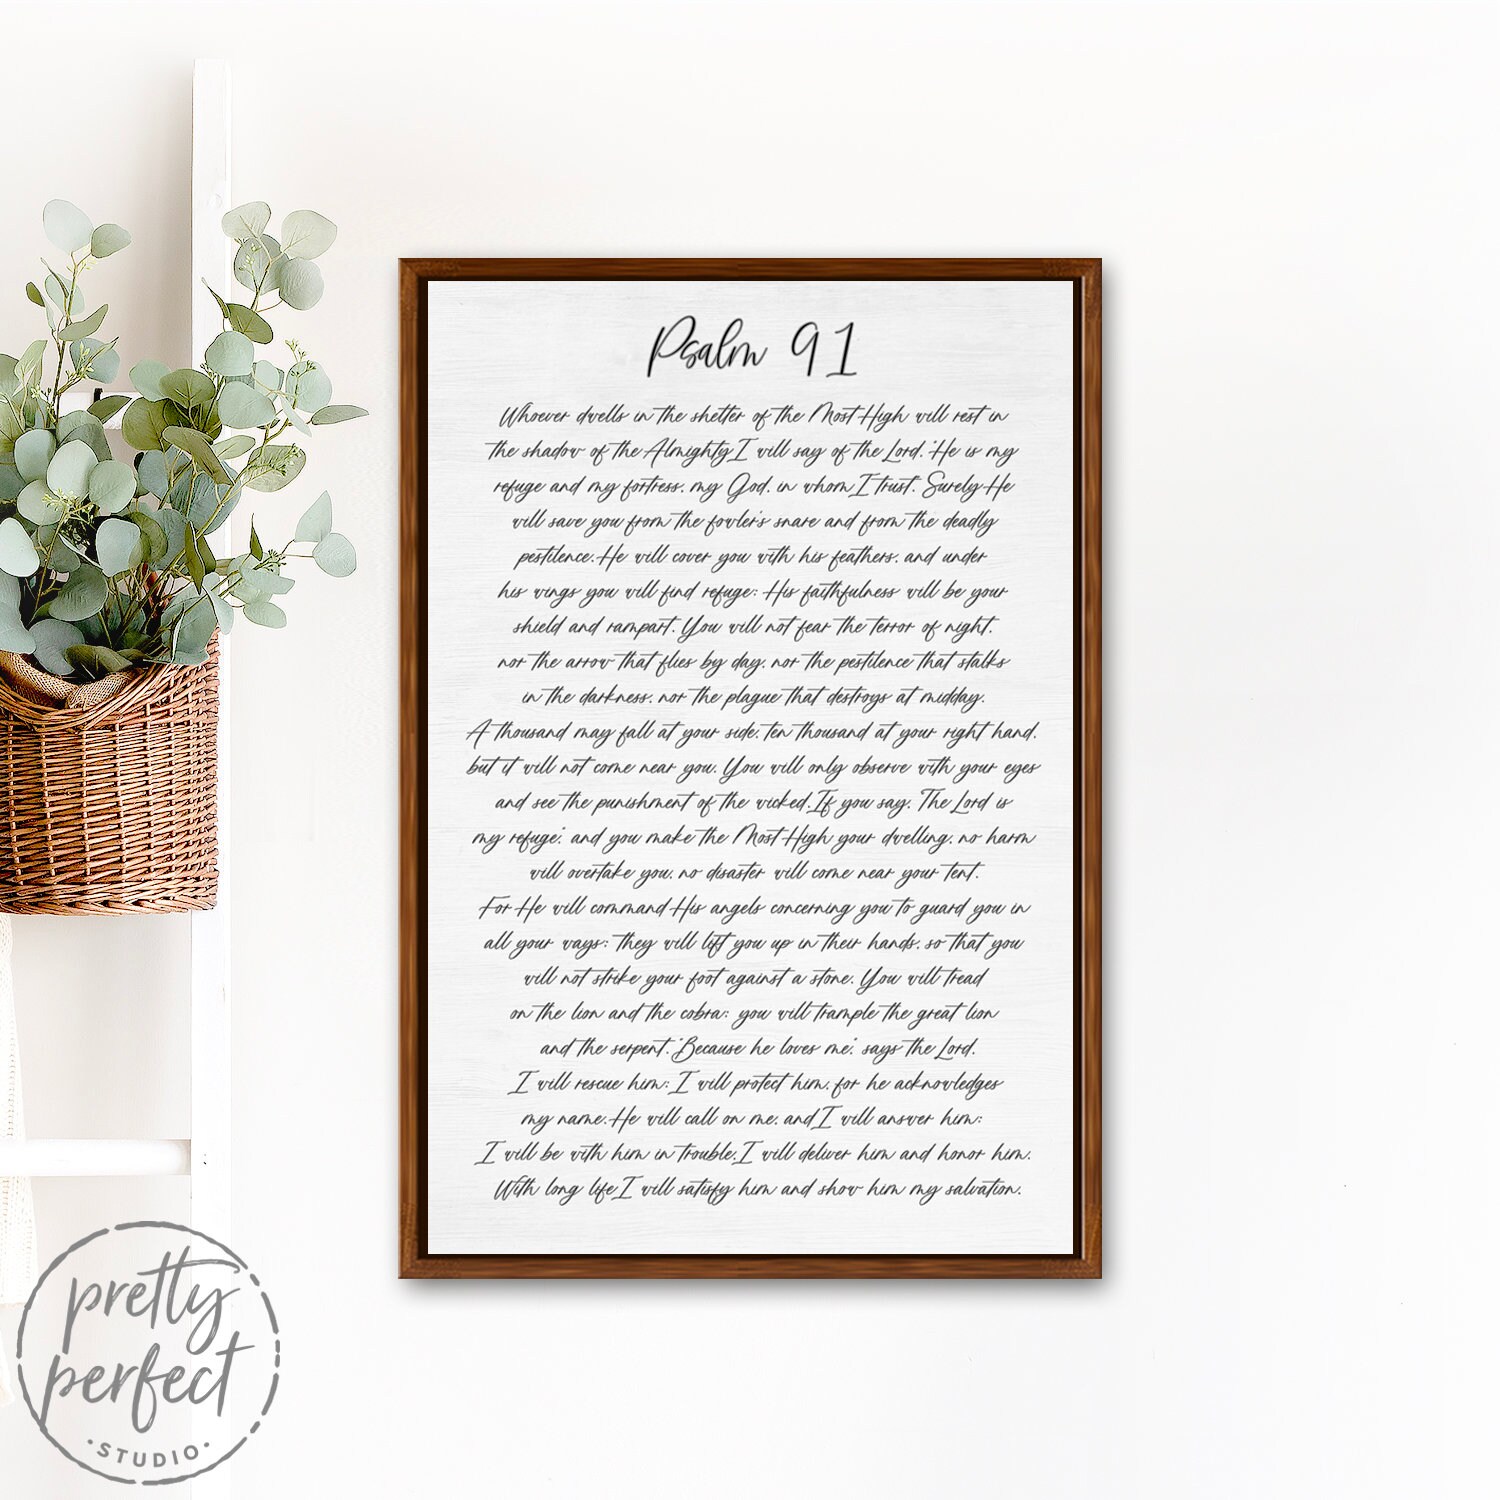 Psalm 91
Whoever dwells in the shelter of the Most High will rest in
the shadow of the Almighty. I will say of the Lord, "He is my
refuge and my fortress, my God, in whom I trust." Surely He
will save you from the fowler's snare and from the deadly
pestilence. He will cover you with his feathers, and under
his wings you will find refuge; His faithfulness will be your
shield and rampart. You will not fear the terror of night,
nor the arrow that flies by day, nor the pestilence that stalks
in the darkness, nor the plague that destroys at midday.
A thousand may fall at your side, ten thousand at your right hand,
but it will not come near you. You will only observe with your eyes
and see the punishment of the wicked. If you say, "The Lord is
my refuge", and you make the Most High your dwelling, no harm
will overtake you, no disaster will come near your tent.
For He will command His angels concerning you to guard you in
all your ways; they will lift you up in their hands, so that you
will not strike your foot against a stone. You will tread
on the lion and the cobra; you will trample the great lion
and the serpent. "Because he loves me", says the Lord,
I will rescue him; I will protect him, for he acknowledges
my name. He will call on me, and I will answer him;
I will be with him in trouble, I will deliver him and honor him.
With long life I will satisfy him and show him my salvation.
pretty
perfect
·STUDIO·